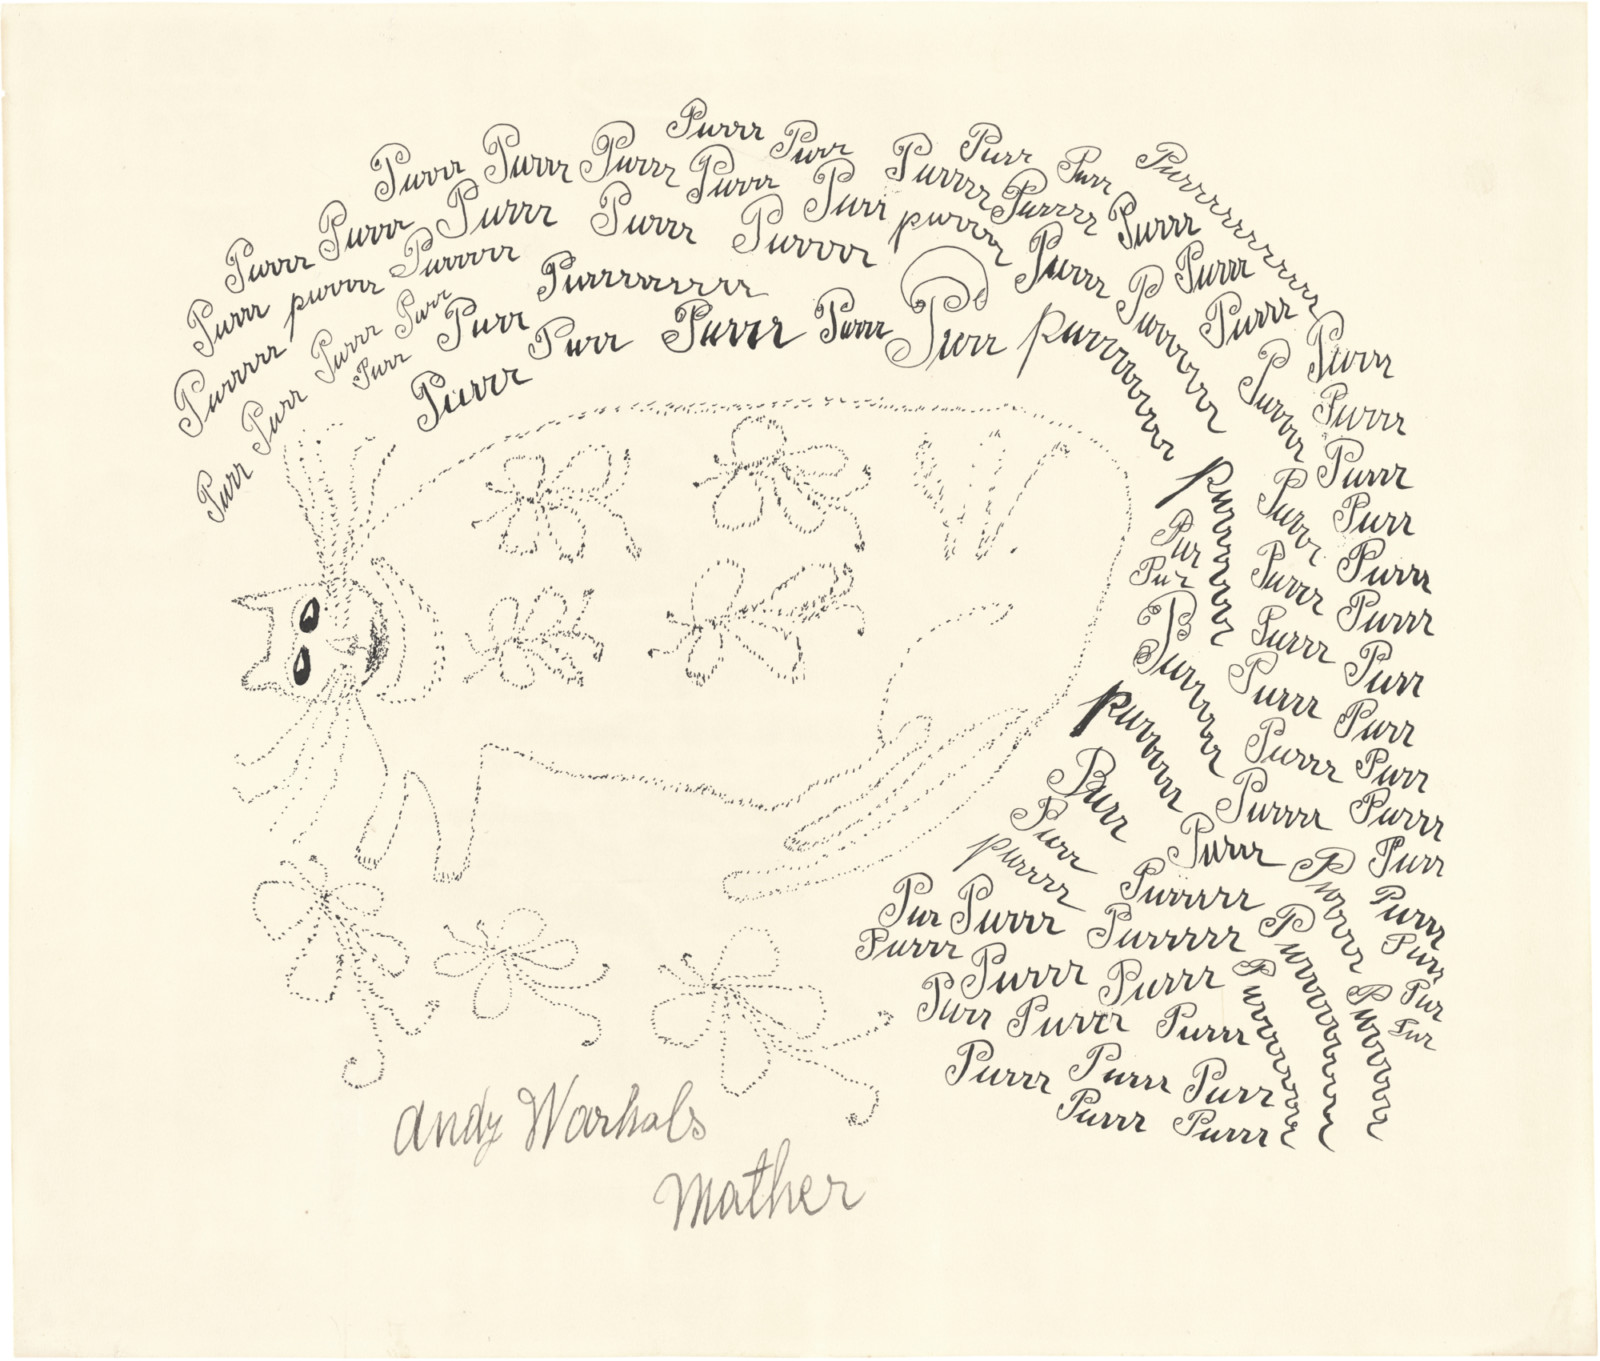 Purrr Purrr Purrr Purrr Purr Purrrr Purr Purr Purrrrrrrrrrrrr
Purrrr Purrrr Purrrr Purrr Purrrr Purrr Purrrrr Purr purrrr Purrrrr Purrrr
Purrr purrrr Purrrrr Purrrrrrrrr Purrr Purrrr Purrr
Purrrrr Purr Purrr Purr Purr Purrr
Purr Purr Purrr Purrr Purrr Purr Purrr Purrr Purr purrrrrrrrrr
Purrrrrrr Purrr
Purrrr Purrr
purrrrrrrr Purrr Purrr
Pur Purrr Purr
Pur Purrr Purrr
Purrrrrr Purrr Purrr
Purrr Purr
purrrrrr Purrr Purr
Purrr Purr
Purrrr Purrr
Purr
Purr Purrr Purr
purrrr Purrrrr Purrrrr Purrr
Pur Purrr Purrrrr Purrrrrrrr Purr
Purrr Purrr Purrr Purrrrrrr Purrrrrr Pur
Purr Purrr Purrr Pur
Purrr Purrr Purrr
Purrr Purrr
andy Warhals
mather